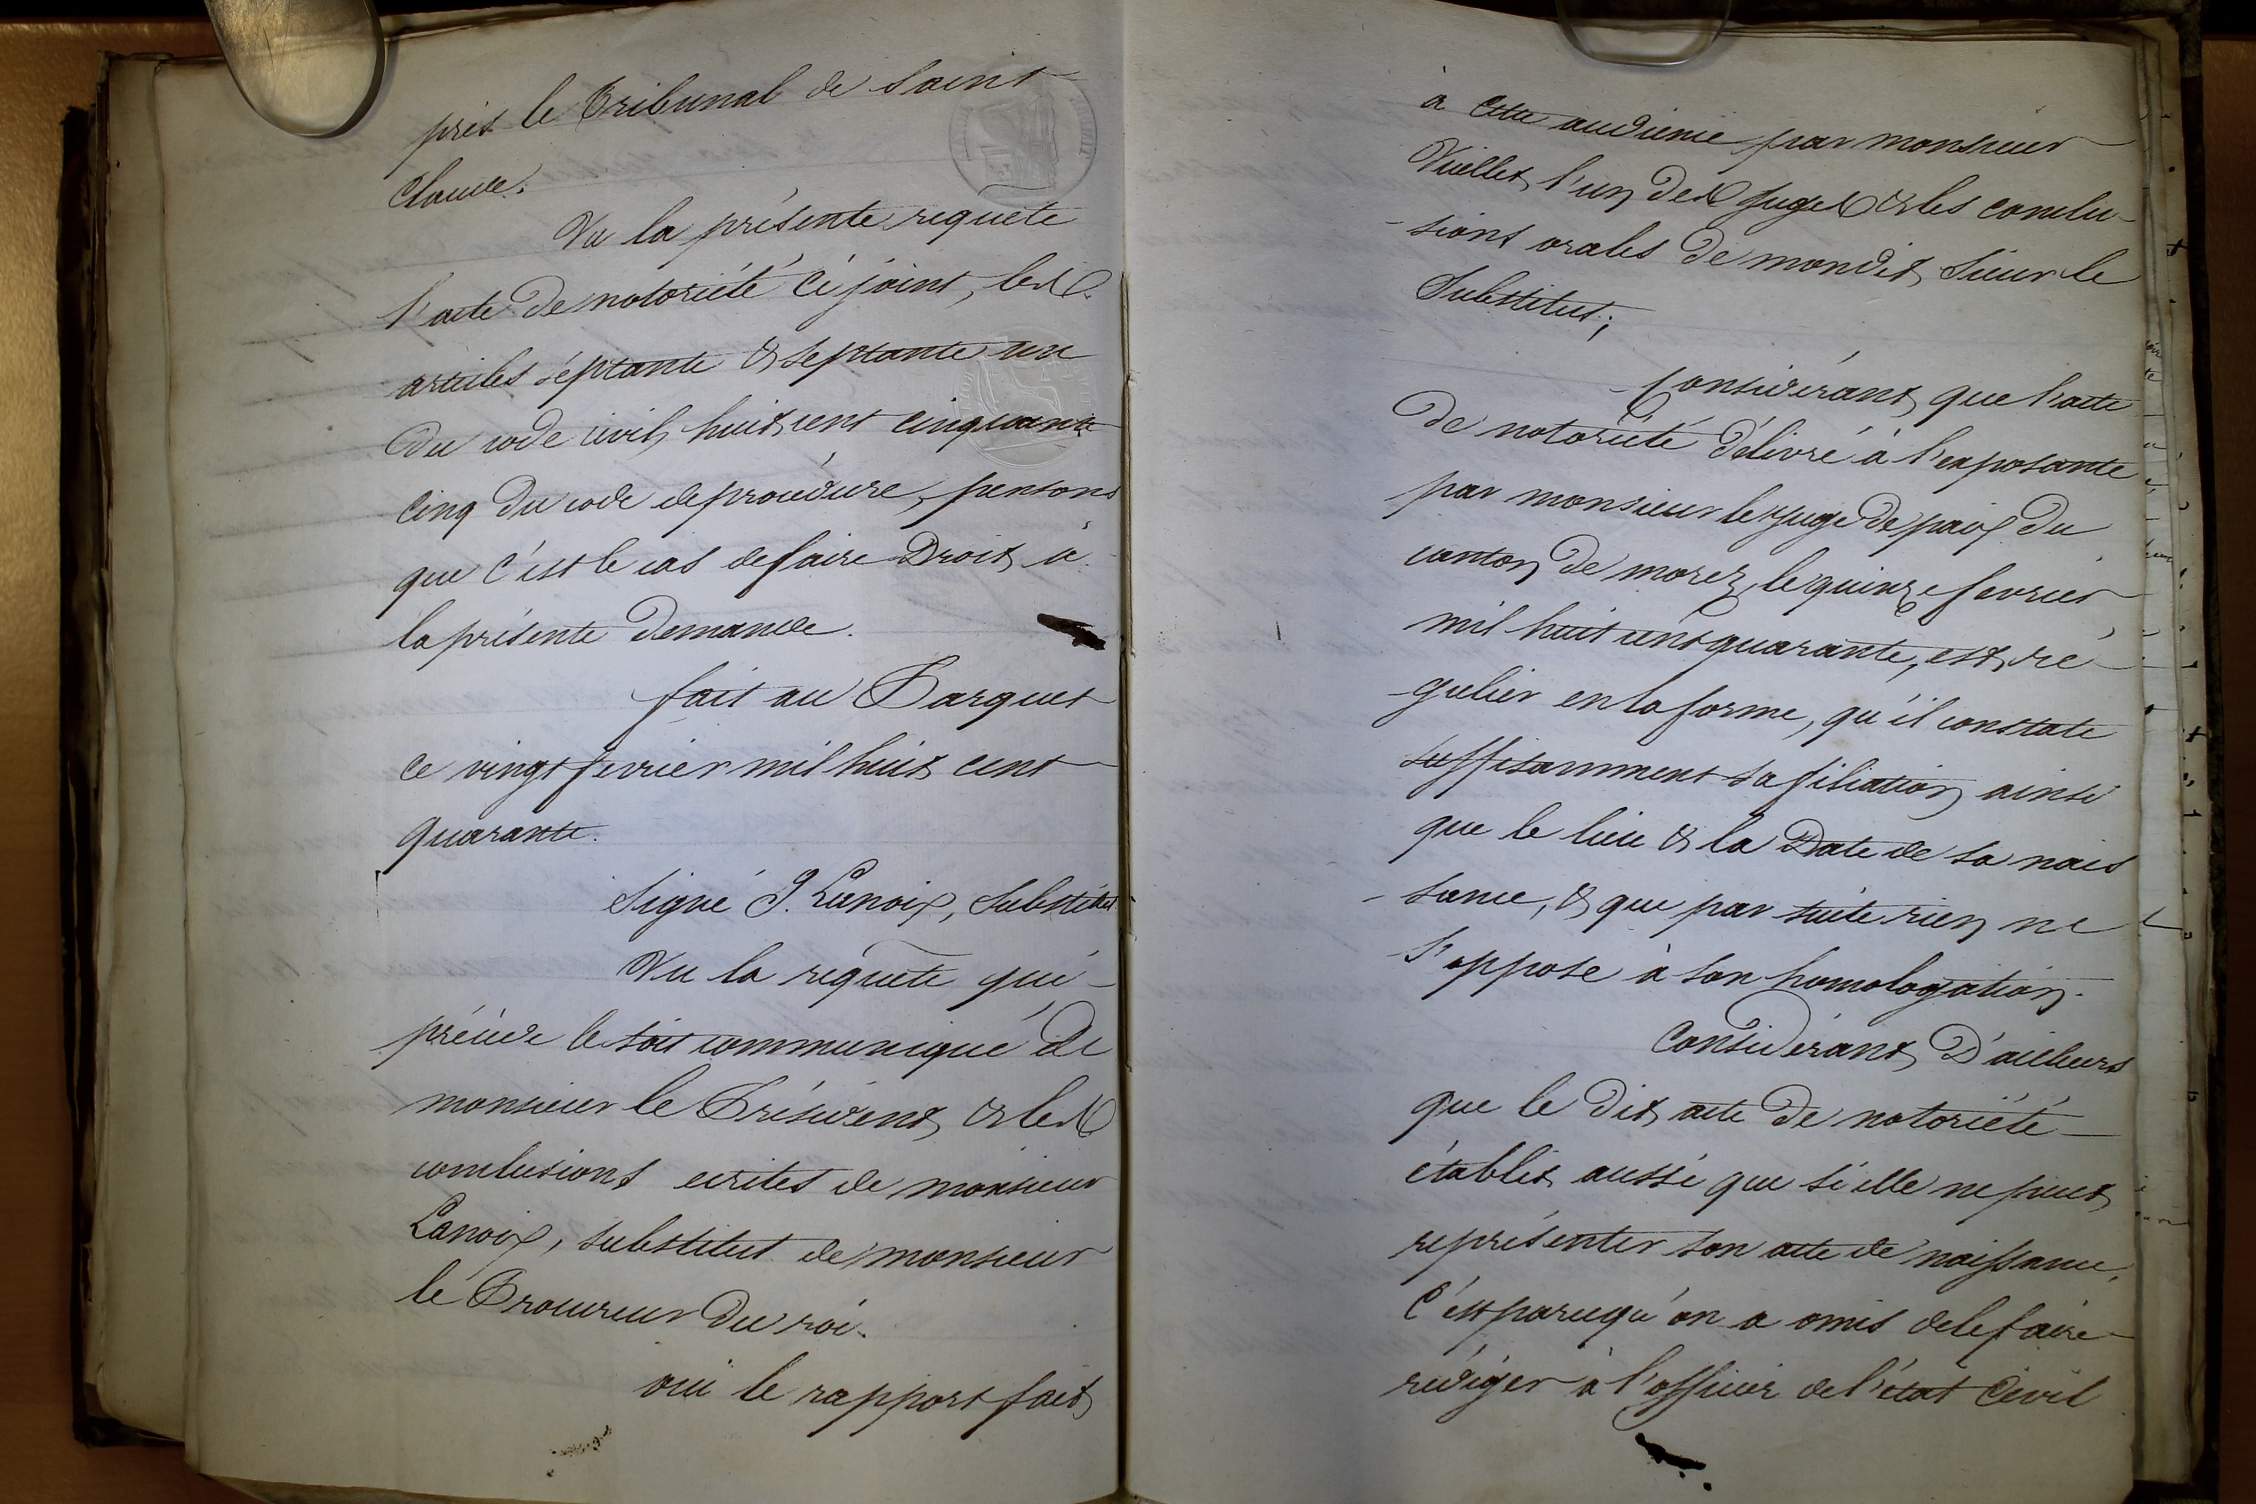 près le Tribunal de Saint
Claude.
Vu la présente requete
l'acte de notoriété ci joint, les
articles séptante & septante un
du code civil, huit cent cinquante
cinq du code de procédure, pensons
que c'est le cas de faire Droit à
la présente Demande.
fait au Parquet
ce vingt fevrier mil huit cent
quarante.
Signé J. Lanoix, Substitut
Vu la requete qui
précède le soit communiqué de
monsieur le Président, & les
conclusions ecrites de monsieur
Lanoix, substitut de monsieur
le Procureur du roi.
oui le rapport fait
à cette audience par monsieur
Vuillet, l'un des Juges & les conclu-
-sions orales de mondit, Sieur le
Substitut;
Considérant que l'acte
de notoriété délivré à l'exposante
par monsieur le Juge de paix du
canton de morez, le quinze fevrier
mil huit cent quarante, est, ré-
-gulier en la forme, qu'il constate
suffisamment sa filiation ainsi
que le lieu & la Date de sa nais
-sance, & que par suite rien ne
s'oppose à son homologation.
Considérant, D'ailleurs
que le dit, acte de notoriété
établit aussi que si elle ne peut
représenter son acte de naissance,
C'est parcequ'on a omis de le faire
rédiger à l'officier de l'état Civil